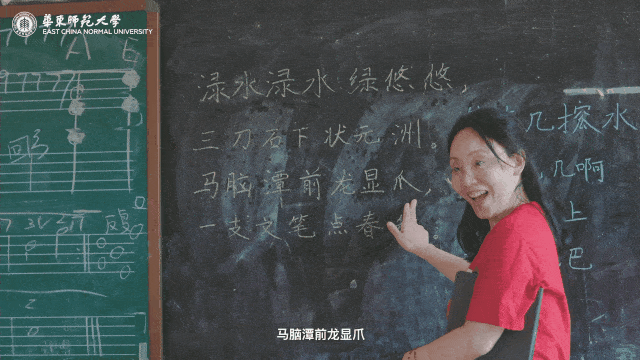 華東師範大學
EAST CHINA NORMAL UNIVERSITY
渌水渌水绿悠悠，
三刀石下状元洲。
马脑潭前龙显爪，
一支文笔点春
几搲水
几啊
上
巴
马脑潭前龙显爪